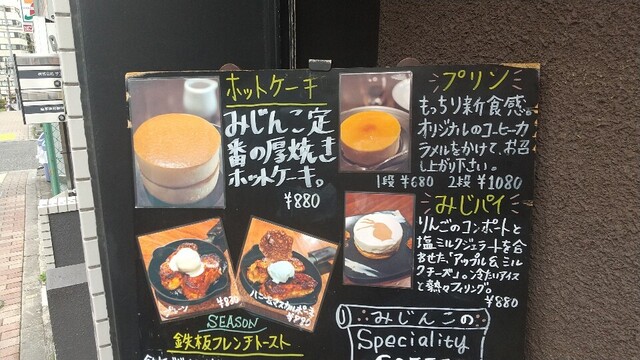 ホットケーキ
みじんこ定
番の厚焼き
ホットケーキ。
¥880
プリン
もっちり新食感。
オリジナルのコーヒーカ
ラメルをかけて、お召
し上がり下さい。
1段 ¥680 2段 ¥1080
みじパイ
りんごのコンポートと
塩ミルクジェラートを合
わせた、「アップル&ミルク
チーズ」。冷たいアイス
と熱々フィリング。
¥880
SEASON
鉄板フレンチトースト
みじんこの
Speciality